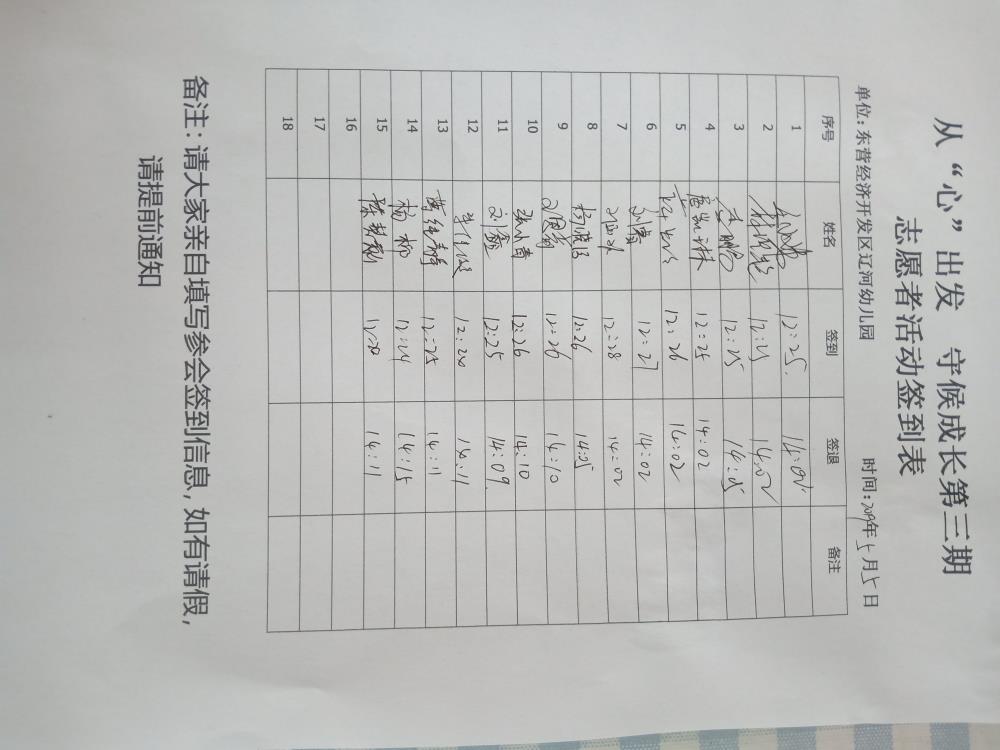 从“心”出发 守候成长第三期
志愿者活动签到表
单位：东营经济开发区辽河幼儿园 时间：2019年5月5日
序号 姓名 签到 签退 备注
1 12:25
2 14:02
3 李鹏 12:25 14:05
4 12:25 14:02
5 12:26 14:02
6 12:27 14:02
7 12:28 14:02
8 12:26 14:05
9 12:26 14:10
10 12:26 14:10
11 刘鑫 12:25 14:09
12 12:20 14:11
13 12:25 14:11
14 杨柳 12:24 14:15
15 14:11
16
17
18
备注：请大家亲自填写参会签到信息，如有请假，
请提前通知